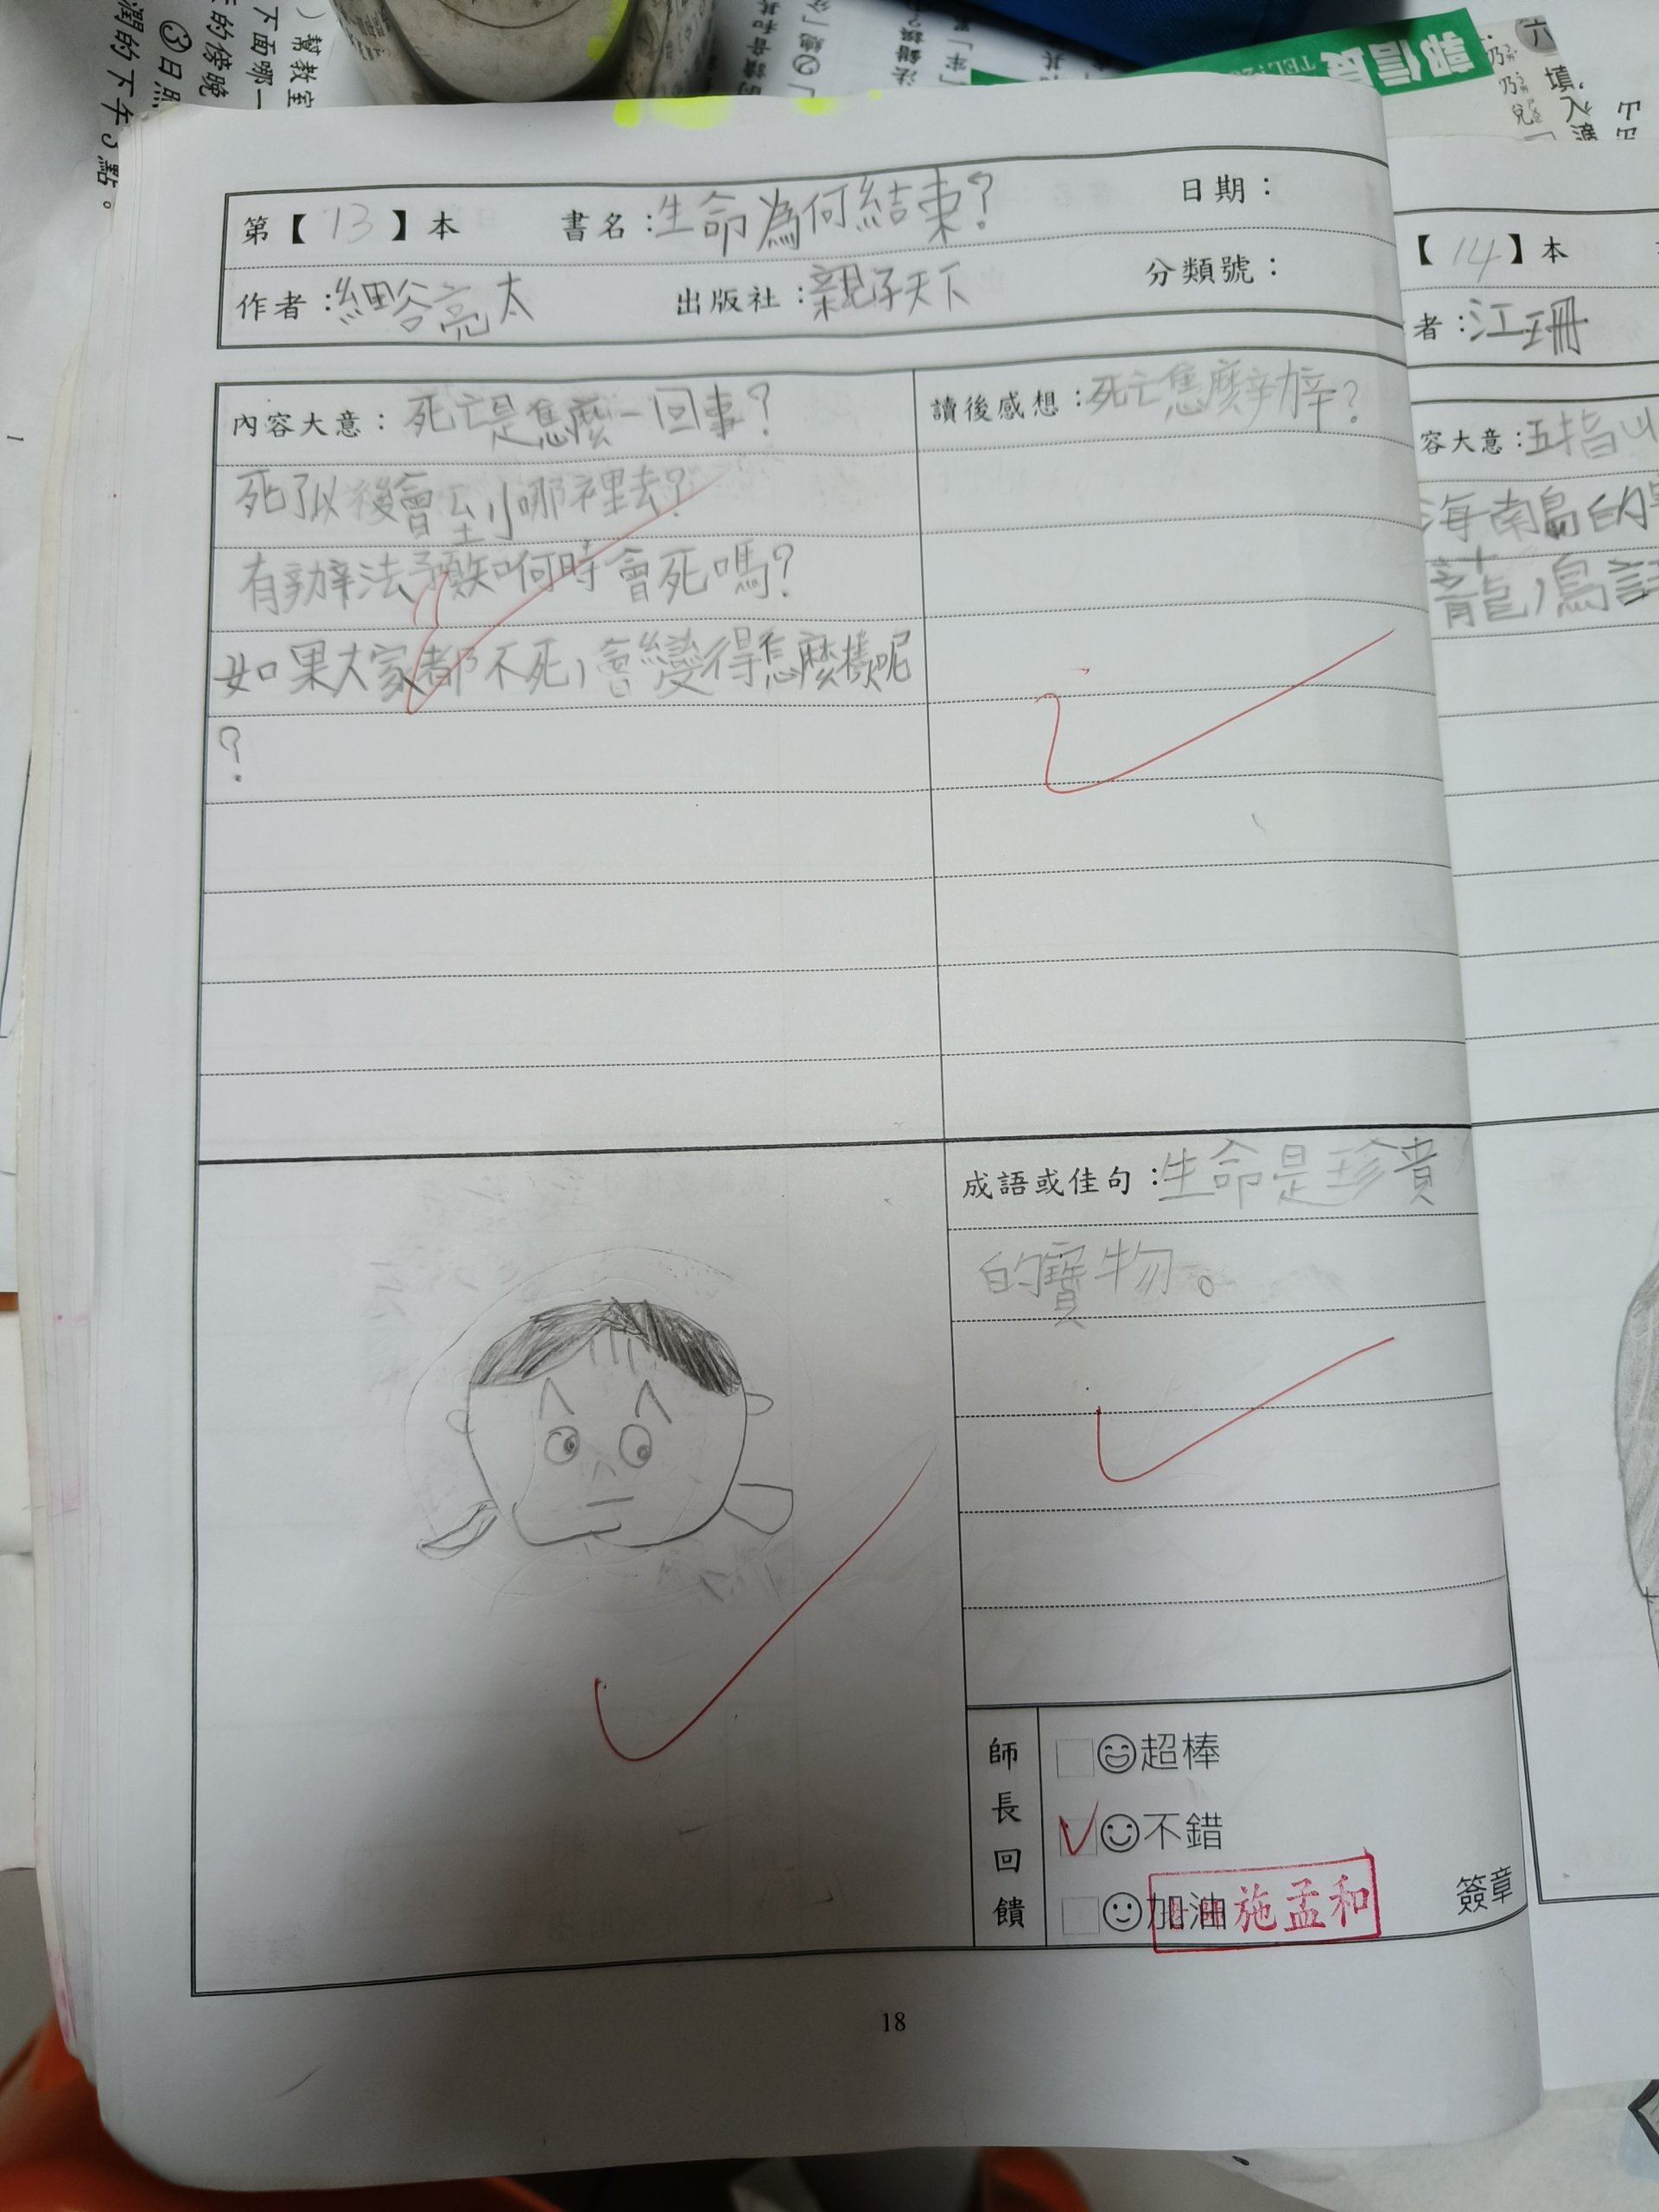 第【 13 】本 書名：生命為何結束？ 日期：
作者：細谷亮太 出版社：親子天下 分類號：
內容大意：死亡是怎麼一回事？
死了以後會到哪裡去？
有辦法預知何時會死嗎？
如果大家都不死，會變得怎麼樣呢
？
讀後感想：死亡怎麼辦？
成語或佳句：生命是珍貴
的寶物。
師長回饋
超棒
不錯
加油
施孟和
簽章
18
【 14 】本
者：江珊
容大意：五指山
海南島的
幫教室
下面哪一
③日照
的傍晚
的下午3點。
郭信良
TEL:
六
填入